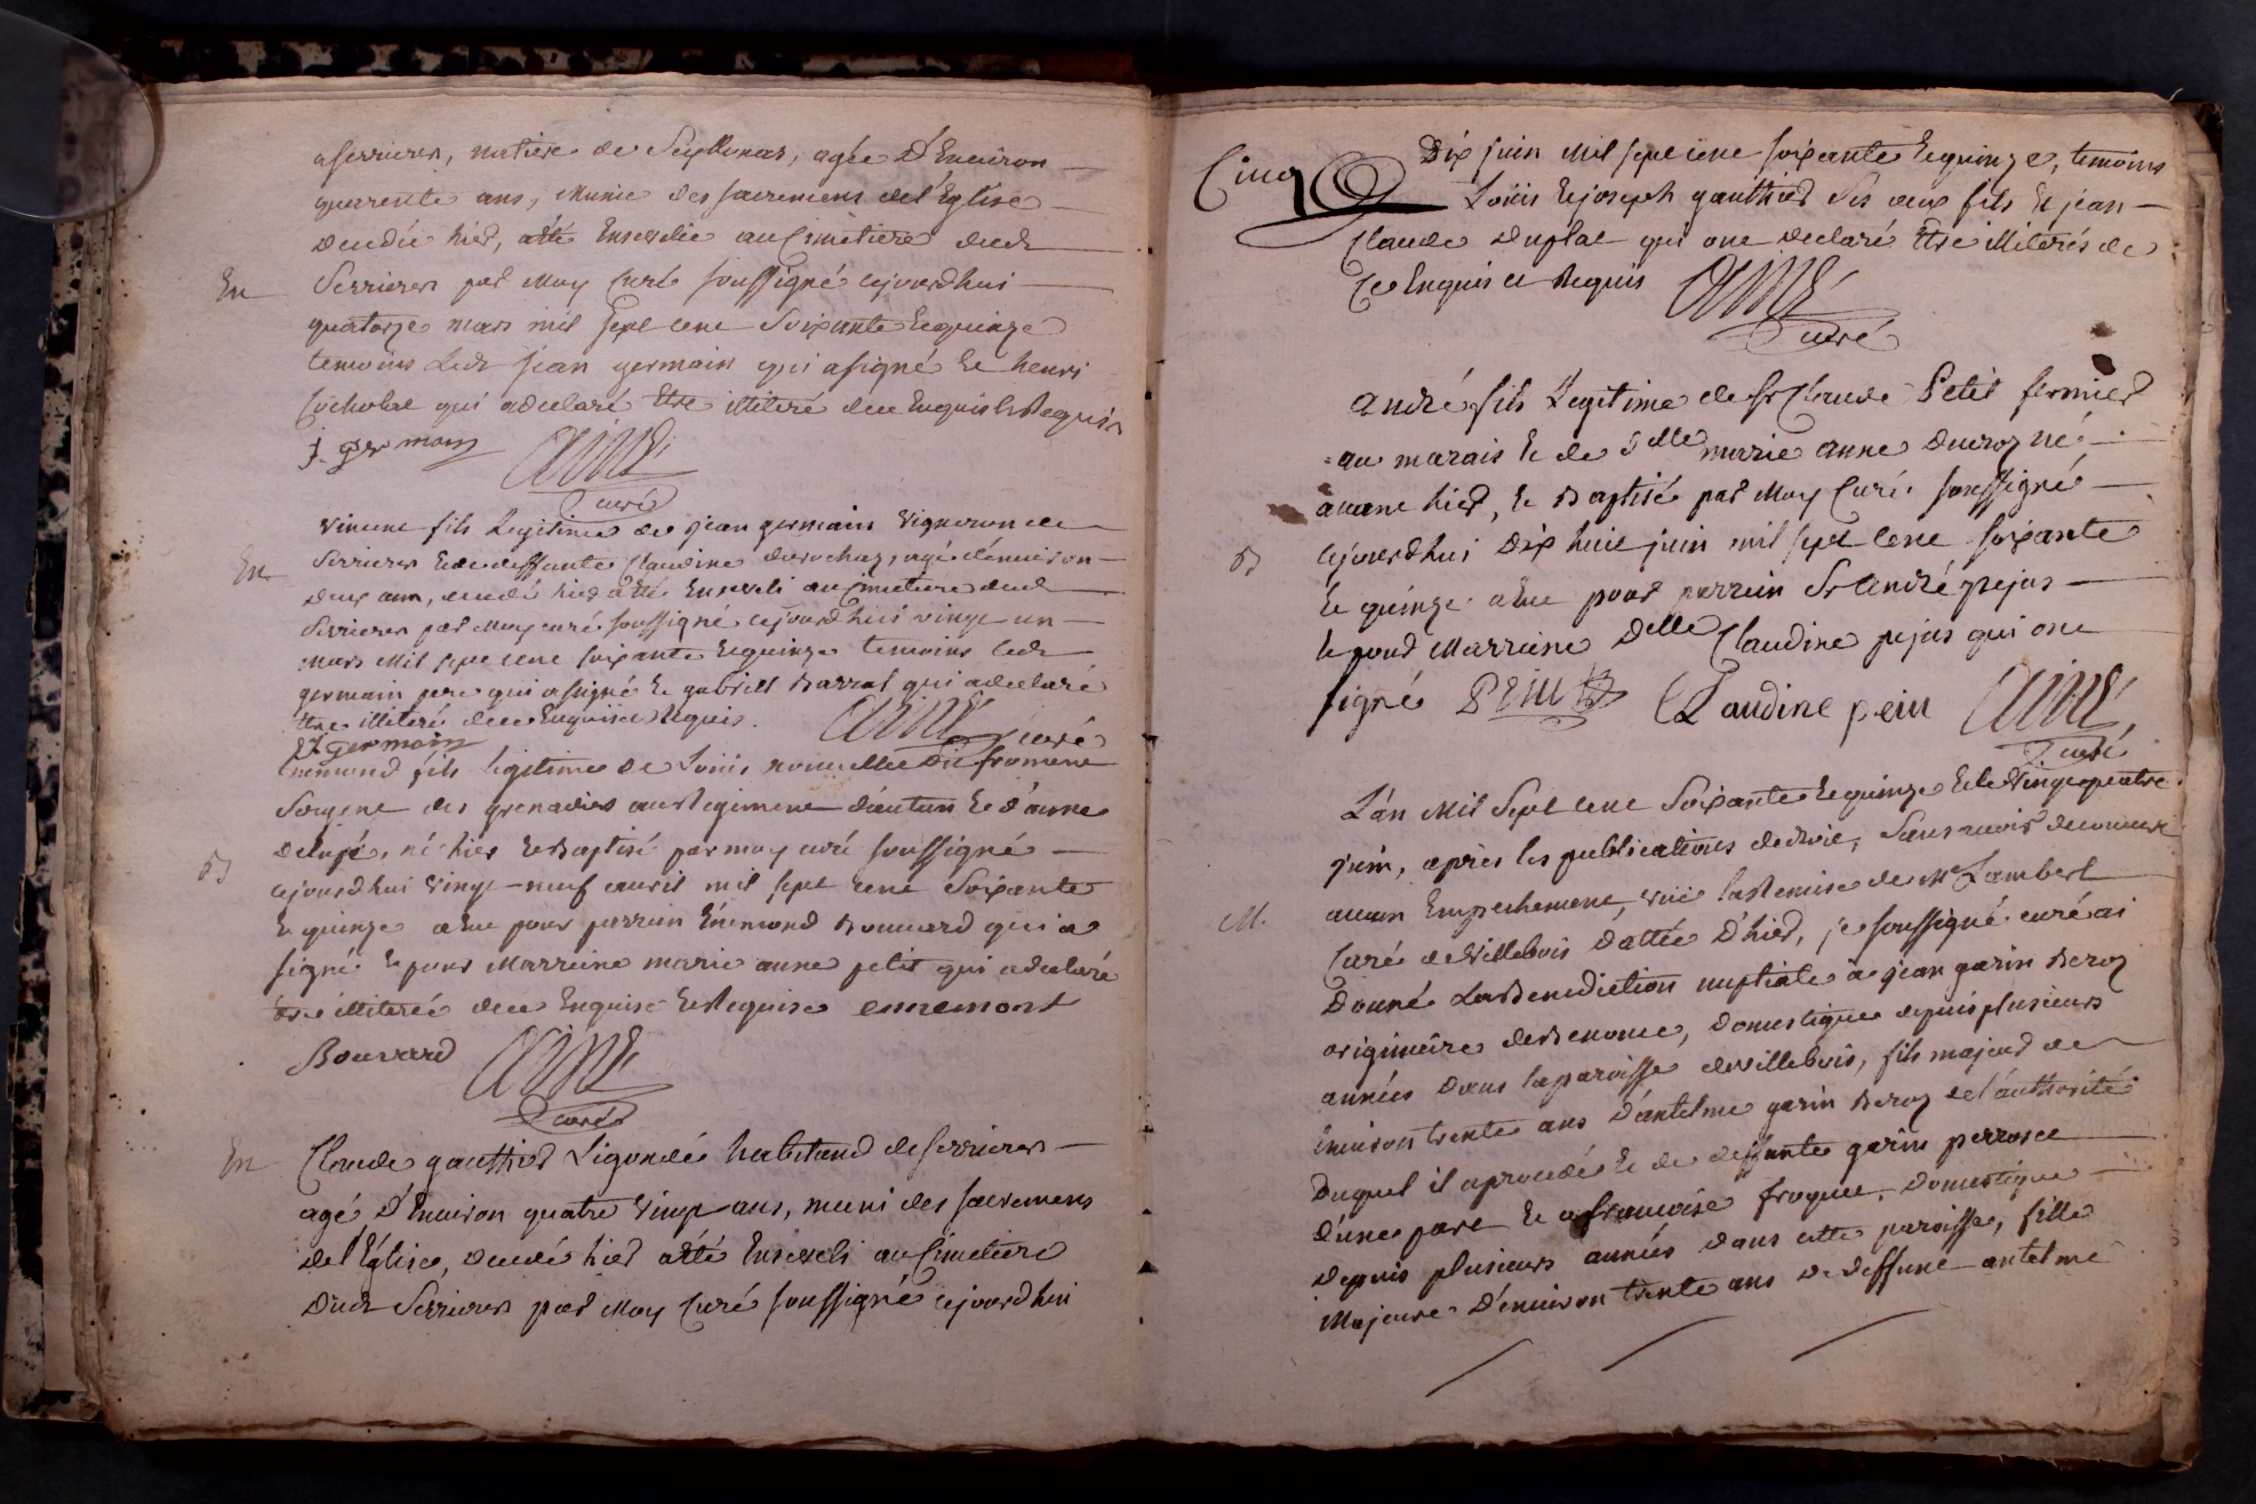 aserrieres, native de Seyllonas, agée D'Environ
quarente ans, Munie des sacremens del'Eglise
decedée hier, a été Ensevelie au Cimetiere dud
En
Serrieres par Moy Curé soussigné cejourdhui
quatorze mars mil sept cent Soixante Et quinze
temoins Led jean germain qui asigné Et henri
qui adeclaré Etre illiteré dece Enquis Et Requis
j. germain AIMÉ
Curé
vincent fils Legitime de jean germain vigneron de
En
Serrieres Et de deffunte Claudine durochaz, agé d'environ
deux ans, decedé hier a été Enseveli au Cimetiere dud
Serrieres par Moy curé soussigné cejourdhui vingt un
Mars Mil sept cent soixante Et quinze temoins led
germain pere qui asigné Et gabriell Barral qui adeclaré
Etre illiteré dece Enquis et Requis. AIMÉ curé
j germain
Enemond fils legitime de Loüis nouvellet Dit froment
Sergent des grenadiers au Regiment d'autun Et d'anne
né hier Et Baptisé par moy curé soussigné
B
cejourdhui vingt-neuf avril mil sept cent Soixante
Et quinze a Eu pour parrein Enemond Bouvard qui a
signé Et pour Marreine marie anne petit qui adeclaré
être illiterée dece Enquise Et Requise ennemont
Bouvard AIMÉ
Curé
En
Claude gauthier Ligondé habitand de serrieres
agé D'Environ quatre vingt ans, muni des sacremens
del'Eglise, decedé hier a été Enseveli au Cimetiere
Dud Serrieres par Moy Curé soussigné cejourdhui
Cinq
Dix juin Mil sept cent soixante Et quinze, temoins
Loüis Et joseph gauthier Ses deux fils Et jean
Claude Duplat qui ont declaré Etre illiterés de
Ce Enquis et Requis AIMÉ
Curé
André fils Legitime de Sr Claude Petit fermier
au marais Et de Delle marie anne Ducroz né
avant hier, Et Baptisé par Moy Curé soussigné
B
cejourdhui Dix huit juin mil sept cent soixante
Et quinze a Eu pour parrein Sr André pejus
Et pour Marreine Delle Claudine pejus qui ont
signé Claudine peiu AIMÉ
Curé
L'an Mil Sept cent Soixante Et quinze Et le vingt quatre
juin, après les publications dedroit, Sans avoir decouvert
M.
aucun Empechement, vüe la Remise de Mr Lambert
Curé de villebois Dattée D'hier, je soussigné curé ai
Donné La Benediction nuptiale à jean garin Beroz
originaire de Benonce, Domestique depuis plusieurs
années Dans la paroisse devillebois, fils majeur de
Environ trente ans D'antelme garin Beroz de l'authorité
Duquel il aprocedé Et de deffunte garin perroset
D'une part Et a francoise froquet, Domestique
depuis plusieurs années dans cette paroisse, fille
Majeure D'environ trente ans De deffunt antelme